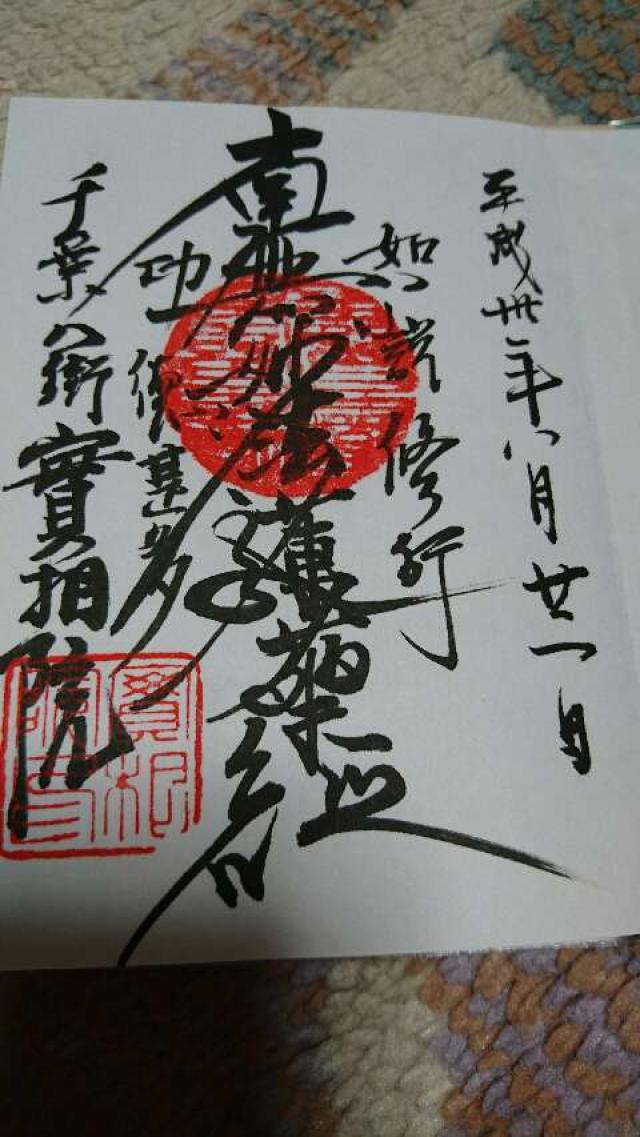 平成卅年八月廿一日
如説修行
南無妙法蓮華経
功徳甚多
千葉八街實相院
實相院印